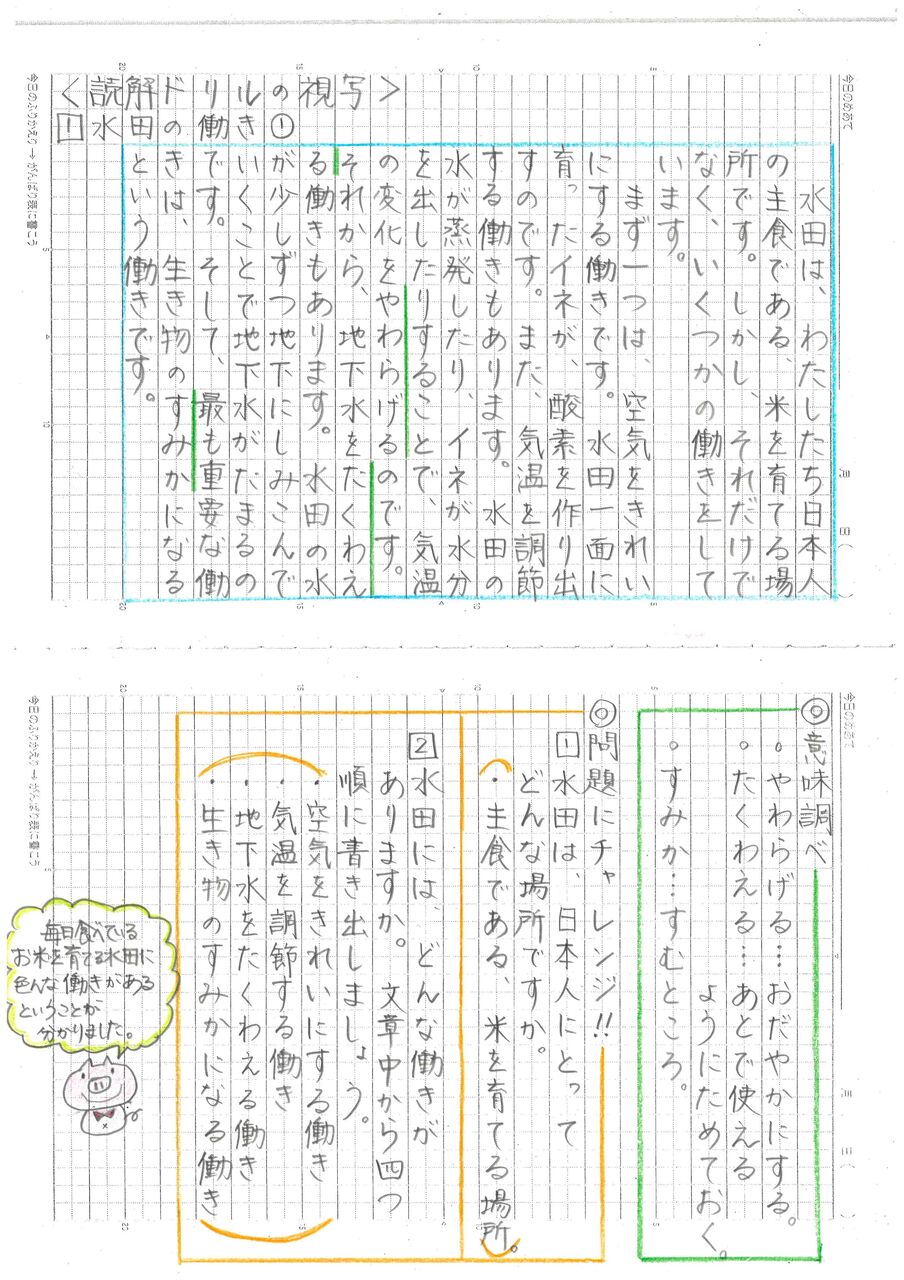 ＜読解ドリルの視写＞
1 水田の働き①
今日のめあて
月 日( )
水田は、わたしたち日本人
の主食である、米を育てる場
所です。しかし、それだけで
なく、いくつかの働きをして
います。
まず一つは、空気をきれい
にする働きです。水田一面に
育ったイネが、酸素を作り出
すのです。また、気温を調節
する働きもあります。水田の
水が蒸発したり、イネが水分
を出したりすることで、気温
の変化をやわらげるのです。
それから、地下水をたくわえ
る働きもあります。水田の水
が少しずつ地下にしみこんで
いくことで地下水がたまるの
です。そして、最も重要な働
きは、生き物のすみかになる
という働きです。
今日のふりかえり→がんばり表に書こう
5
10
15
20
5
10
今日のめあて
◎意味調べ
。やわらげる…おだやかにする。
。たくわえる…あとで使える
ようにためておく。
。すみか…すむところ。
◎問題にチャレンジ!!
1 水田は、日本人にとって
どんな場所ですか。
・主食である、米を育てる場所。
2 水田には、どんな働きが
ありますか。文章中から四つ
順に書き出しましょう。
・空気をきれいにする働き
・気温を調節する働き
・地下水をたくわえる働き
・生き物のすみかになる働き
今日のふりかえり→がんばり表に書こう
毎日食べている
お米を育てる水田に
色んな働きがある
ということが
分かりました。